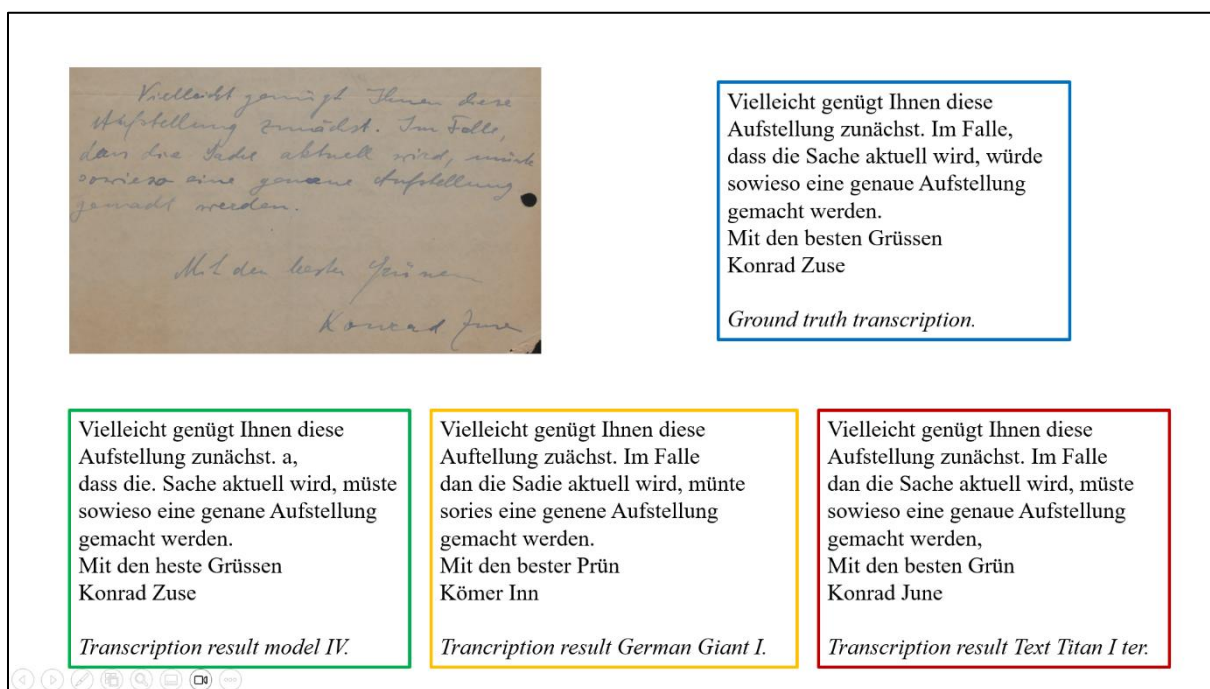 Vielleicht genügt Ihnen diese
Aufstellung zunächst. Im Falle,
dass die Sache aktuell wird, müsste
sowieso eine genaue Aufstellung
gemacht werden.
Mit den besten Grüssen
Konrad Zuse
Vielleicht genügt Ihnen diese
Aufstellung zunächst. Im Falle,
dass die Sache aktuell wird, würde
sowieso eine genaue Aufstellung
gemacht werden.
Mit den besten Grüssen
Konrad Zuse
Ground truth transcription.
Vielleicht genügt Ihnen diese
Aufstellung zunächst. a,
dass die. Sache aktuell wird, müste
sowieso eine genane Aufstellung
gemacht werden.
Mit den heste Grüssen
Konrad Zuse
Transcription result model IV.
Vielleicht genügt Ihnen diese
Auftellung zuächst. Im Falle
dan die Sadie aktuell wird, münte
sories eine genene Aufstellung
gemacht werden.
Mit den bester Prün
Kömer Inn
Trancription result German Giant I.
Vielleicht genügt Ihnen diese
Aufstellung zunächst. Im Falle
dan die Sache aktuell wird, müste
sowieso eine genaue Aufstellung
gemacht werden,
Mit den besten Grün
Konrad June
Transcription result Text Titan I ter.